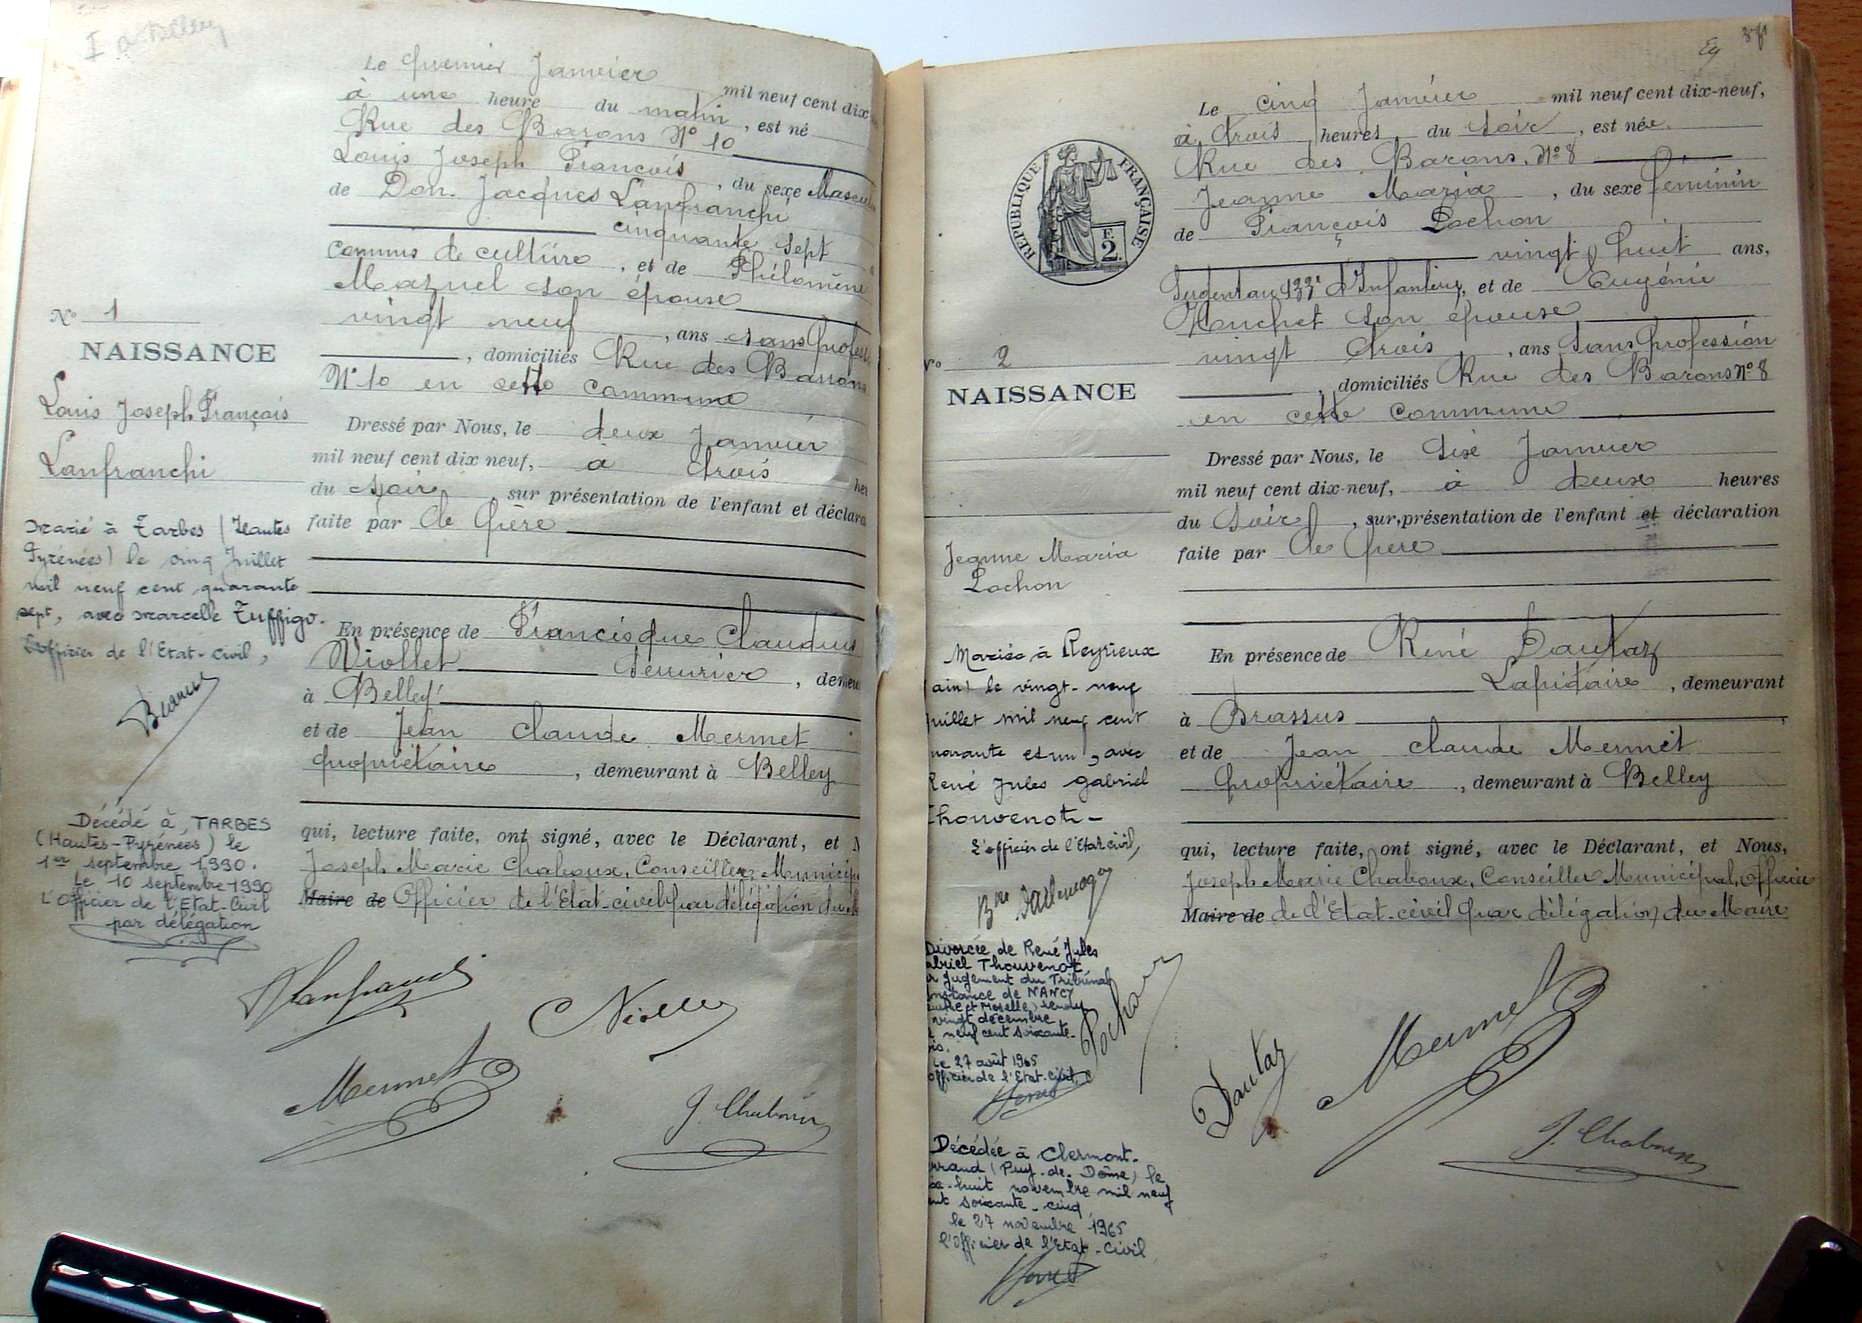 I a Belley
Le premier Janvier mil neuf cent dix
à une heure du matin, est né
Rue des Barons N° 10
Louis Joseph François, du sexe Mascu
de Don Jacques Lanfranchi
cinquante sept
commis de culture, et de Philomène
Mazuel son épouse
vingt neuf, ans sans profess
, domiciliés Rue des Barons
N° 10 en cette commune
Dressé par Nous, le deux Janvier
mil neuf cent dix neuf, à trois heu
du soir sur présentation de l'enfant et déclara
faite par le père
En présence de Francisque Claudius
Viollet Serrurier, demeu
à Belley
et de Jean Claude Mermet
propriétaire, demeurant à Belley
qui, lecture faite, ont signé, avec le Déclarant, et N
Joseph Marie Chaboux, Conseiller Municipa
Maire de Officier de l'Etat-civil par délégation du M
N° 1
NAISSANCE
Louis Joseph François
Lanfranchi
Marié à Tarbes (Hautes
Pyrénées) le cinq Juillet
mil neuf cent quarante
sept, avec Marcelle Tuffigo.
L'officier de l'Etat-civil,
Décédé à TARBES
(Hautes-Pyrénées) le
1er septembre 1990.
Le 10 septembre 1990
L'Officier de l'Etat-Civil
par délégation
Lanfranchi
Viollet
Mermet
J. Chaboux
Le cinq Janvier mil neuf cent dix-neuf,
à trois heures du soir, est née
Rue des Barons, N° 8
Jeanne Maria, du sexe féminin
de François Lochon
vingt huit ans,
Sergent au 133e d'Infanterie, et de Eugénie
Huchet son épouse
vingt trois, ans Sans profession
, domiciliés Rue des Barons N° 8
en cette commune
Dressé par Nous, le Six Janvier
mil neuf cent dix-neuf, à deux heures
du soir, sur présentation de l'enfant et déclaration
faite par le père
En présence de René Dautaz
Lapidaire, demeurant
à Brassus
et de Jean Claude Mermet
propriétaire, demeurant à Belley
qui, lecture faite, ont signé, avec le Déclarant, et Nous,
Joseph Marie Chaboux, Conseiller Municipal, Officier
Maire de de l'Etat-civil par délégation du Maire
REPUBLIQUE FRANÇAISE
F.
2.
N° 2
NAISSANCE
Jeanne Maria
Lochon
Mariée à Reyrieux
(ain) le vingt-neuf
juillet mil neuf cent
quarante et un, avec
René Jules Gabriel
Thouvenot.-
L'officier de l'Etat civil,
Divorcée de René Jules
abriel Thouvenot
r Jugement du Tribunal
instance de NANCY
eurthe et Moselle) rendu
vingt décembre
neuf cent soixante-
ois.
Le 27 août 1965
officier de l'Etat-Civil
Décédée à Clermont-
rrand (Puy-de-Dôme) le
ix-huit novembre mil neuf
ent soixante-cinq
le 27 novembre 1965
l'Officier de l'Etat-Civil
Lochon
Dautaz
Mermet
J. Chaboux